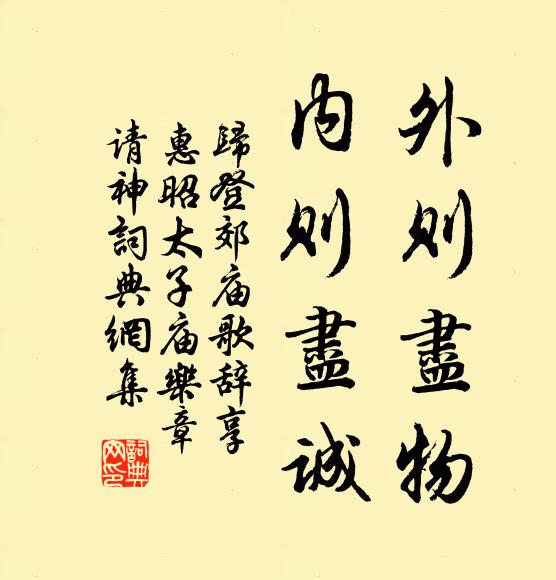 外则盡物
内则盡诚
歸登郊庙歌辞享
惠昭太子庙樂章
请神詞典網集
詞典
网印